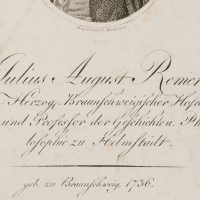 Julius August Remer
Herzog. Braunschweigischer Hofra
und Professor der Geschichte u. Ph
losophie zu Helmstädt.
geb. zu Braunschweig, 1736.